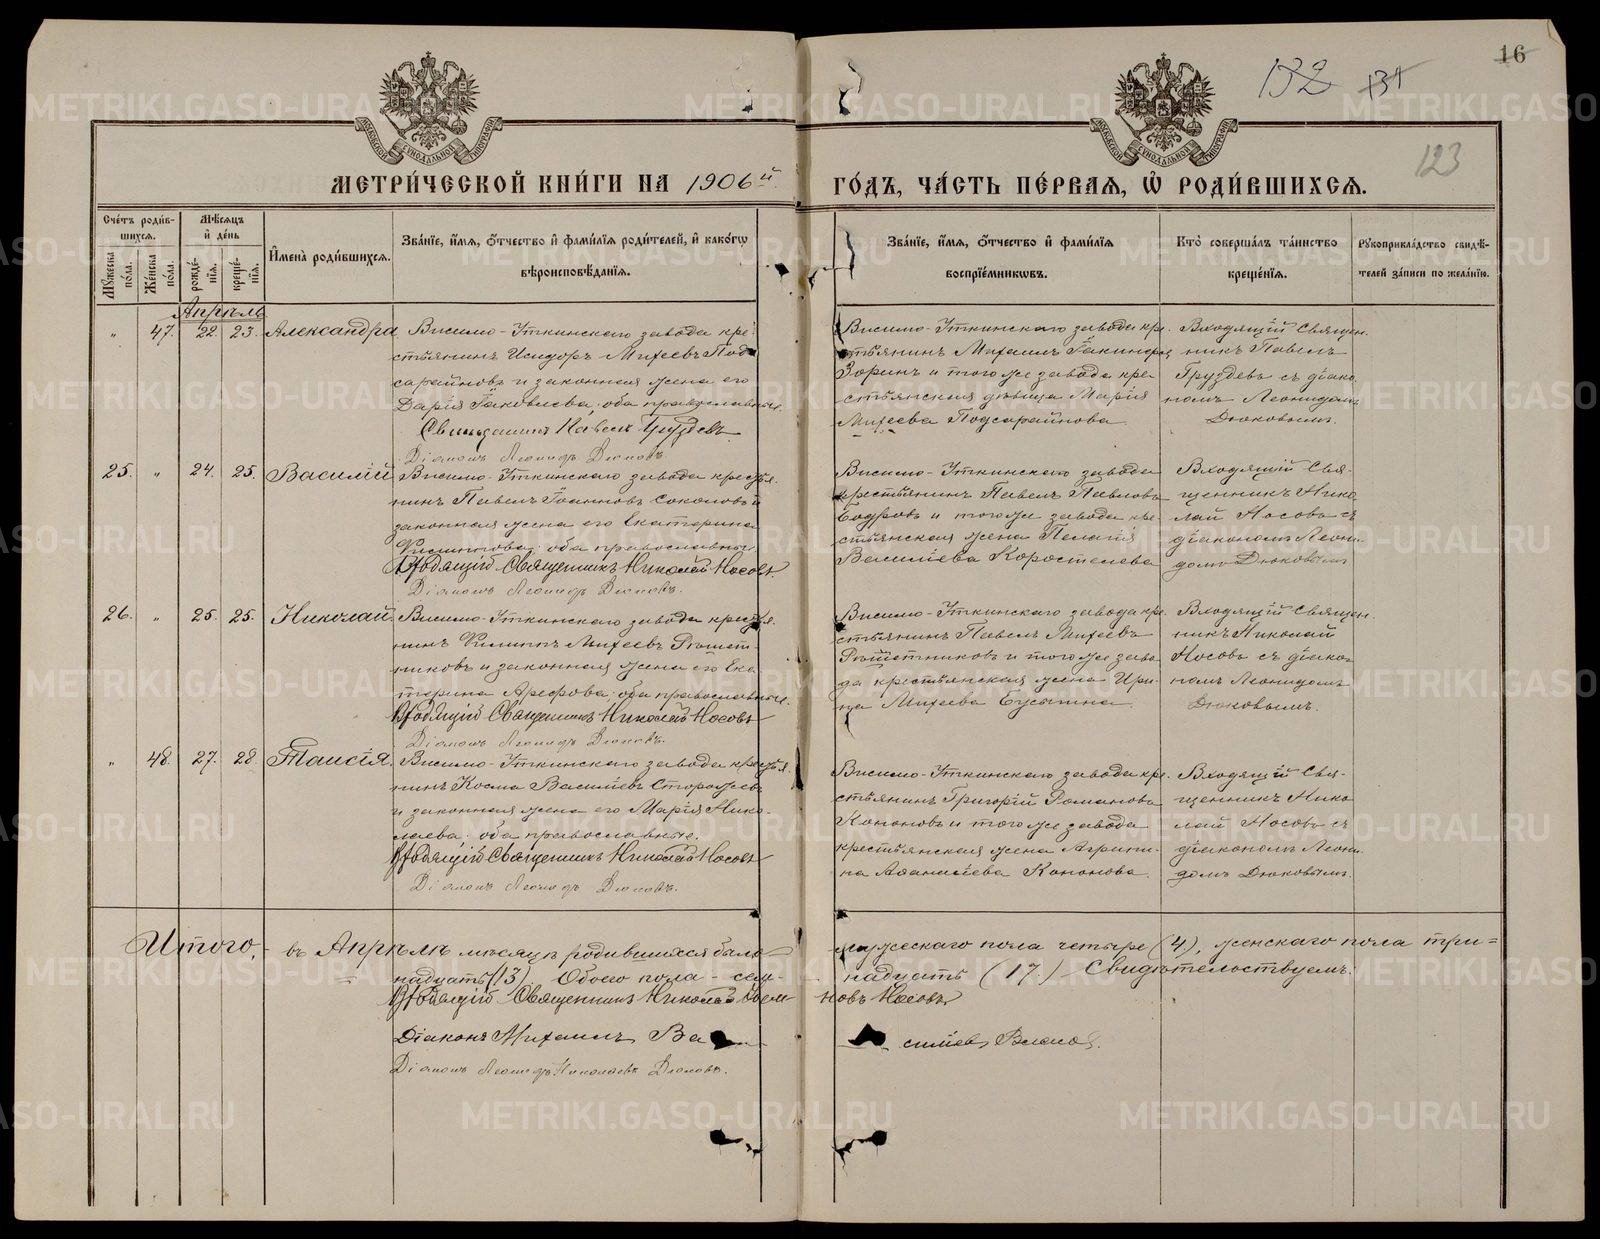 16
132
131
123
МЕТРИ́ЧЕСКОЙ КНИ́ГИ НА 1906й
ГО́ДЪ, ЧА́СТЬ ПЕ́РВАЯ, Ѡ҆ РОДИ́ВШИХСѦ.
Сче́тъ роди́в-
шихсѧ.
Мѹ́жеска по́ла.
Же́нска по́ла.
Мѣ́сѧцъ
и҆ де́нь
рожде́-
нїѧ.
креще́-
нїѧ.
И҆мена̀ роди́вшихсѧ.
Зва́нїе, и҆́мѧ, ѻ҆́тчество и҆ фами́лїѧ роди́телей, и҆ како́гѡ
вѣроисповѣ́данїѧ.
Зва́нїе, и҆́мѧ, ѻ҆́тчество и҆ фами́лїѧ
воспрїе́мникѡвъ.
Кто̀ соверша́лъ та́инство
креще́нїѧ.
Рѹкоприкла́дство свидѣ́-
телей за́писи по жела́нїю.
Апрѣль
„ 47. 22. 23. Александра
Висимо-Уткинскаго завода кре-
стьянинъ Исидоръ Михеевъ Под-
сарайновъ и законная жена его
Дарія Іаковлева, оба православные.
Священникъ Павелъ Груздевъ
Діаконъ Леонидъ Дюковъ
Висимо-Уткинскаго завода кре-
стьянинъ Михаилъ Іакинфов
Зоринъ и того же завода кре-
стьянская дѣвица Марія
Михеева Подсарайнова
Входящій Священ-
никъ Павелъ
Груздевъ съ діако-
номъ Леонидомъ
Дюковымъ.
25. „ 24. 25. Василій
Висимо-Уткинскаго завода крестья-
нинъ Павелъ Іоанновъ Соколовъ и
законная жена его Екатерина
Филиппова, оба православны.
Входящій Священникъ Николай Носовъ.
Діаконъ Леонидъ Дюковъ.
Висимо-Уткинскаго завода
крестьянинъ Павелъ Павловъ
Бодровъ и того же завода кре-
стьянская жена Пелагія
Васильева Коростелева
Входящій Свя-
щенникъ Нико-
лай Носовъ съ
діакономъ Леони-
домъ Дюковымъ
26. „ 25. 25. Николай
Висимо-Уткинскаго завода крестья-
нинъ Филиппъ Михеевъ Рѣшет-
никовъ и законная жена его Ека-
терина Арефова, оба православные.
Входящій Священникъ Николай Носовъ
Діаконъ Леонидъ Дюковъ.
Висимо-Уткинскаго завода кре-
стьянинъ Павелъ Михеевъ
Рѣшетниковъ и того же заво-
да крестьянская жена Ири-
на Михеева Бусыгина
Входящій Священ-
никъ Николай
Носовъ съ діако-
номъ Леонидомъ
Дюковымъ.
„ 48. 27. 28. Таисія.
Висимо-Уткинскаго завода крестья-
нинъ Косма Васильевъ Сторожевъ
и законная жена его Марія Нико-
лаева, оба православные.
Входящій Священникъ Николай Носовъ
Діаконъ Леонидъ Дюковъ.
Висимо-Уткинскаго завода кре-
стьянинъ Григорій Романовъ
Кононовъ и того же завода
крестьянская жена Агрипи-
на Аѳанасіева Кононова.
Входящій Свя-
щенникъ Нико-
лай Носовъ съ
діакономъ Леони-
домъ Дюковымъ.
Итого, - въ Апрѣлѣ мѣсяцѣ родившихся было
мужескаго пола четыре (4), женскаго пола три=
=надцать (13) Обоего пола - сем-
надцать (17.) Свидѣтельствуемъ:
Входящій Священникъ Николай
новъ Носовъ
Діаконъ Михаилъ Ва
сильевъ
Діаконъ Леонидъ Николаевъ Дюковъ.
METRIKI.GASO-URAL.RU